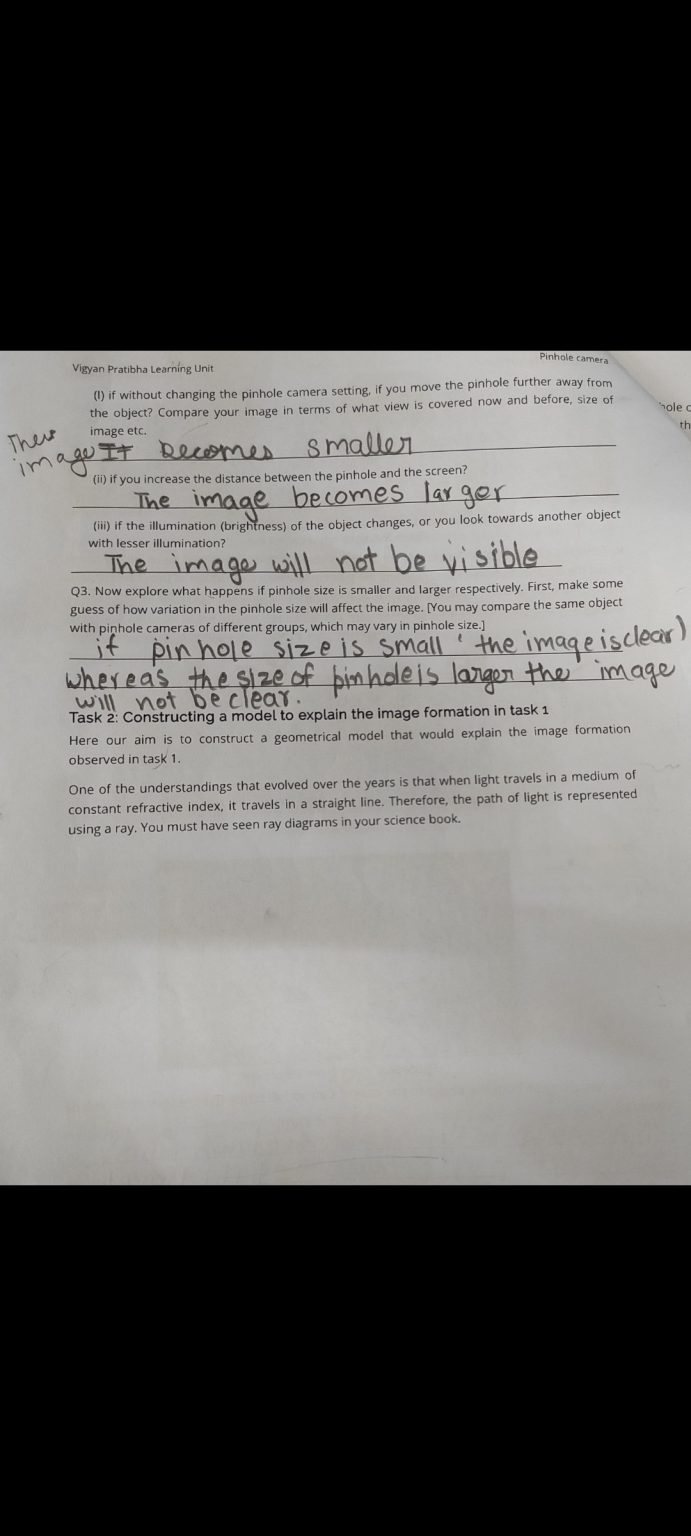 Vigyan Pratibha Learning Unit
Pinhole camera
(I) if without changing the pinhole camera setting, if you move the pinhole further away from
the object? Compare your image in terms of what view is covered now and before, size of
image etc.
The
image It becomes smaller
(ii) if you increase the distance between the pinhole and the screen?
The image becomes larger
(iii) if the illumination (brightness) of the object changes, or you look towards another object
with lesser illumination?
The image will not be visible
Q3. Now explore what happens if pinhole size is smaller and larger respectively. First, make some
guess of how variation in the pinhole size will affect the image. [You may compare the same object
with pinhole cameras of different groups, which may vary in pinhole size.]
if pin hole size is small ' the image is clear)
whereas the size of pinhole is larger the image
will not be clear.
Task 2: Constructing a model to explain the image formation in task 1
Here our aim is to construct a geometrical model that would explain the image formation
observed in task 1.
One of the understandings that evolved over the years is that when light travels in a medium of
constant refractive index, it travels in a straight line. Therefore, the path of light is represented
using a ray. You must have seen ray diagrams in your science book.